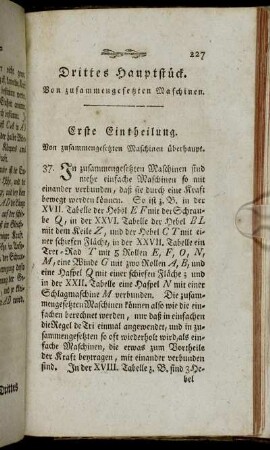 227
Drittes Hauptstück.
Von zusammengesetzten Maschinen.
Erste Eintheilung.
Von zusammengesetzten Maschinen überhaupt.
37. In zusammengesetzten Maschinen sind
mehr einfache Maschinen so mit
einander verbunden, daß sie durch eine Kraft
bewegt werden können. So ist z. B. in der
XVII. Tabelle der Hebel E F mit der Schrau-
be Q, in der XXVI. Tabelle der Hebel B L
mit dem Keile Z, und der Hebel C T mit ei-
ner schiefen Fläche, in der XXVII. Tabelle ein
Tret-Rad T mit 5 Rollen E, F, O, N,
M, eine Winde G mit zwo Rollen A, B, und
eine Haspel Q mit einer schiefen Fläche z und
in der XXII. Tabelle eine Haspel N mit einer
Schlagmaschine M verbunden. Die zusam-
mengesetzten Maschinen können also wie die ein-
fachen berechnet werden, nur daß in einfachen
die Regel de Tri einmal angewendet, und in zu-
sammengesetzten so oft wiederholt wird, als ein-
fache Maschinen, die etwas zum Vortheile
der Kraft beytragen, mit einander verbunden
sind. In der XVIII. Tabelle z. B. sind 3 He-
bel
Drittes